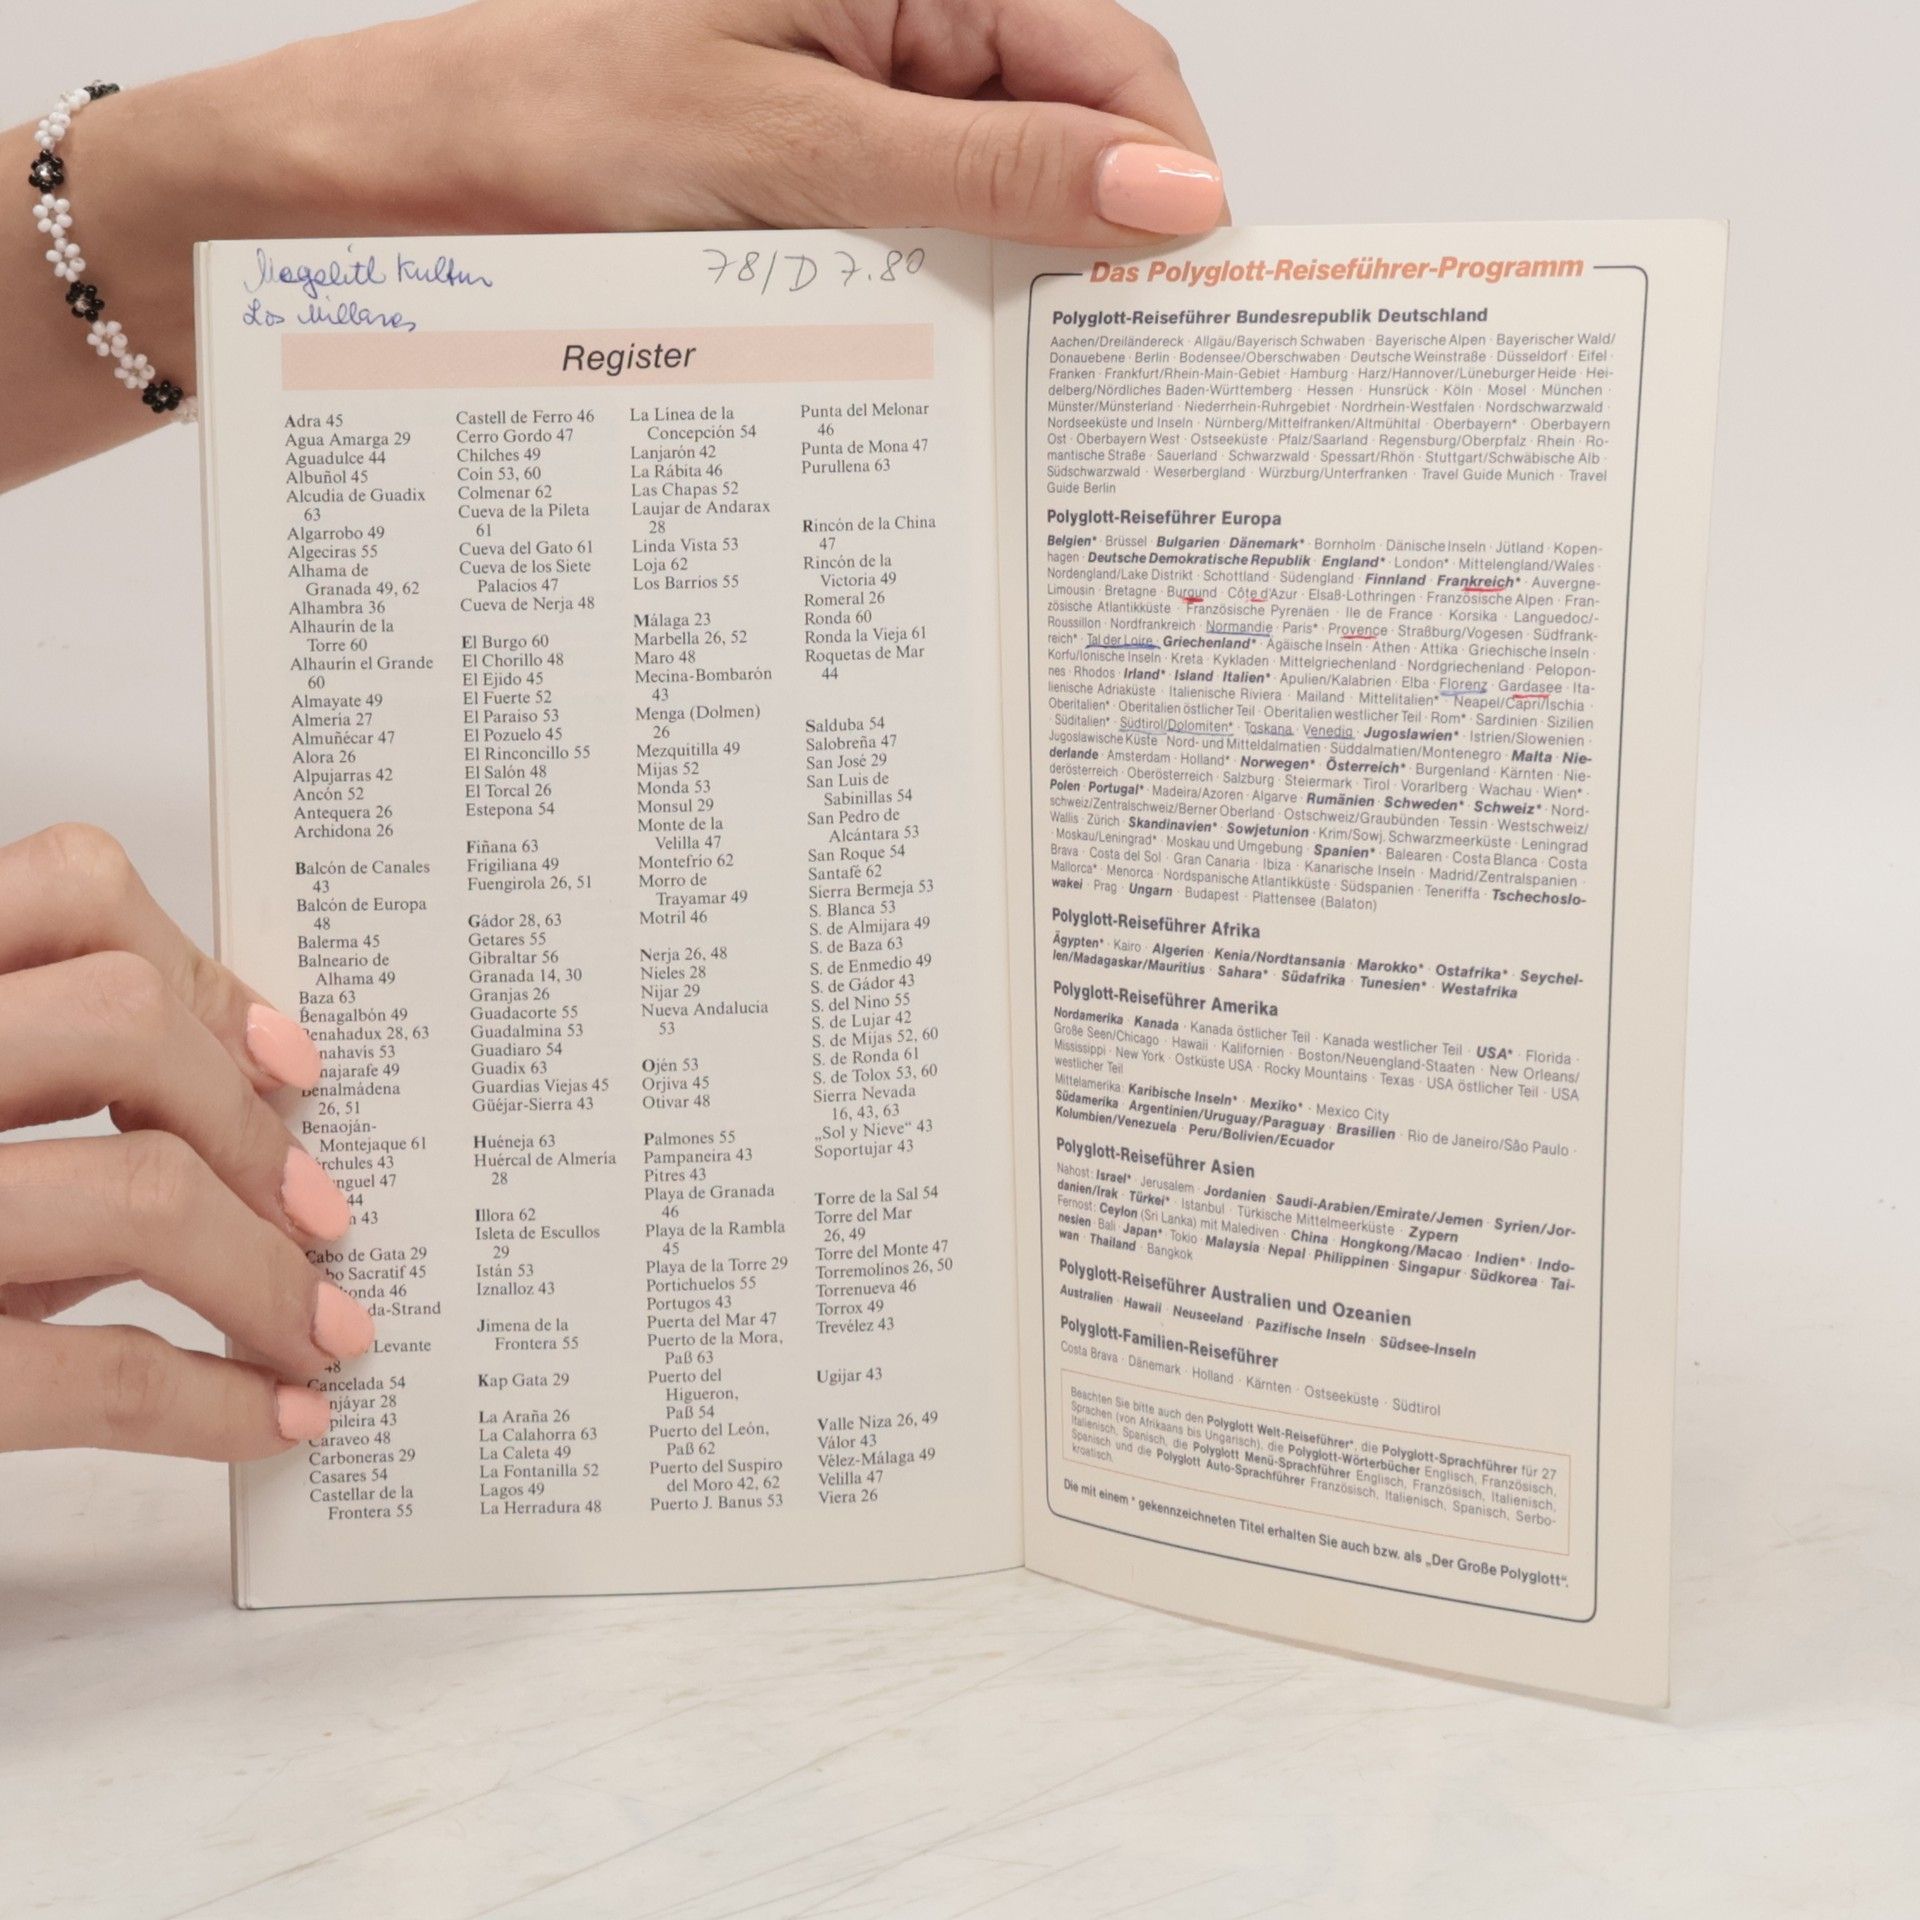 Megalith Kultur
Los Millares
78/D 7.80
Register
Adra 45
Agua Amarga 29
Aguadulce 44
Albuñol 45
Alcudia de Guadix
63
Algarrobo 49
Algeciras 55
Alhama de
Granada 49, 62
Alhambra 36
Alhaurín de la
Torre 60
Alhaurín el Grande
60
Almayate 49
Almería 27
Almuñécar 47
Alora 26
Alpujarras 42
Ancón 52
Antequera 26
Archidona 26
Balcón de Canales
43
Balcón de Europa
48
Balerma 45
Balneario de
Alhama 49
Baza 63
Benagalbón 49
Benahadux 28, 63
nahavís 53
najarafe 49
Benalmádena
26, 51
Benaoján-
Montejaque 61
rchules 43
nguel 47
44
n 43
Cabo de Gata 29
bo Sacratif 45
onda 46
da-Strand
Levante
48
Cancelada 54
njáyar 28
pileira 43
Caraveo 48
Carboneras 29
Casares 54
Castellar de la
Frontera 55
Castell de Ferro 46
Cerro Gordo 47
Chilches 49
Coin 53, 60
Colmenar 62
Cueva de la Pileta
61
Cueva del Gato 61
Cueva de los Siete
Palacios 47
Cueva de Nerja 48
El Burgo 60
El Chorillo 48
El Ejido 45
El Fuerte 52
El Paraiso 53
El Pozuelo 45
El Rinconcillo 55
El Salón 48
El Torcal 26
Estepona 54
Fiñana 63
Frigiliana 49
Fuengirola 26, 51
Gádor 28, 63
Getares 55
Gibraltar 56
Granada 14, 30
Granjas 26
Guadacorte 55
Guadalmina 53
Guadiaro 54
Guadix 63
Guardias Viejas 45
Güéjar-Sierra 43
Huéneja 63
Huércal de Almería
28
Illora 62
Isleta de Escullos
29
Istán 53
Iznalloz 43
Jimena de la
Frontera 55
Kap Gata 29
La Araña 26
La Calahorra 63
La Caleta 49
La Fontanilla 52
Lagos 49
La Herradura 48
La Línea de la
Concepción 54
Lanjarón 42
La Rábita 46
Las Chapas 52
Laujar de Andarax
28
Linda Vista 53
Loja 62
Los Barrios 55
Málaga 23
Marbella 26, 52
Maro 48
Mecina-Bombarón
43
Menga (Dolmen)
26
Mezquitilla 49
Mijas 52
Monda 53
Monsul 29
Monte de la
Velilla 47
Montefrio 62
Morro de
Trayamar 49
Motril 46
Nerja 26, 48
Nieles 28
Nijar 29
Nueva Andalucia
53
Ojén 53
Orjiva 45
Otivar 48
Palmones 55
Pampaneira 43
Pitres 43
Playa de Granada
46
Playa de la Rambla
45
Playa de la Torre 29
Portichuelos 55
Portugos 43
Puerta del Mar 47
Puerto de la Mora,
Paß 63
Puerto del
Higueron,
Paß 54
Puerto del León,
Paß 62
Puerto del Suspiro
del Moro 42, 62
Puerto J. Banus 53
Punta del Melonar
46
Punta de Mona 47
Purullena 63
Rincón de la China
47
Rincón de la
Victoria 49
Romeral 26
Ronda 60
Ronda la Vieja 61
Roquetas de Mar
44
Salduba 54
Salobreña 47
San José 29
San Luis de
Sabinillas 54
San Pedro de
Alcántara 53
San Roque 54
Santafé 62
Sierra Bermeja 53
S. Blanca 53
S. de Almijara 49
S. de Baza 63
S. de Enmedio 49
S. de Gádor 43
S. del Nino 55
S. de Lujar 42
S. de Mijas 52, 60
S. de Ronda 61
S. de Tolox 53, 60
Sierra Nevada
16, 43, 63
„Sol y Nieve“ 43
Soportujar 43
Torre de la Sal 54
Torre del Mar
26, 49
Torre del Monte 47
Torremolinos 26, 50
Torrenueva 46
Torrox 49
Trevélez 43
Ugijar 43
Valle Niza 26, 49
Válor 43
Vélez-Málaga 49
Velilla 47
Viera 26
Das Polyglott-Reiseführer-Programm
Polyglott-Reiseführer Bundesrepublik Deutschland
Aachen/Dreiländereck · Allgäu/Bayerisch Schwaben · Bayerische Alpen · Bayerischer Wald/
Donauebene · Berlin · Bodensee/Oberschwaben · Deutsche Weinstraße · Düsseldorf · Eifel ·
Franken · Frankfurt/Rhein-Main-Gebiet · Hamburg · Harz/Hannover/Lüneburger Heide · Hei-
delberg/Nördliches Baden-Württemberg · Hessen · Hunsrück · Köln · Mosel · München ·
Münster/Münsterland · Niederrhein-Ruhrgebiet · Nordrhein-Westfalen · Nordschwarzwald ·
Nordseeküste und Inseln · Nürnberg/Mittelfranken/Altmühltal · Oberbayern* · Oberbayern
Ost · Oberbayern West · Ostseeküste · Pfalz/Saarland · Regensburg/Oberpfalz · Rhein · Ro-
mantische Straße · Sauerland · Schwarzwald · Spessart/Rhön · Stuttgart/Schwäbische Alb ·
Südschwarzwald · Weserbergland · Würzburg/Unterfranken · Travel Guide Munich · Travel
Guide Berlin
Polyglott-Reiseführer Europa
Belgien* · Brüssel · Bulgarien · Dänemark* · Bornholm · Dänische Inseln · Jütland · Kopen-
hagen · Deutsche Demokratische Republik · England* · London* · Mittelengland/Wales ·
Nordengland/Lake Distrikt · Schottland · Südengland · Finnland · Frankreich* · Auvergne-
Limousin · Bretagne · Burgund · Côte d'Azur · Elsaß-Lothringen · Französische Alpen · Fran-
zösische Atlantikküste · Französische Pyrenäen · Ile de France · Korsika · Languedoc/-
Roussillon · Nordfrankreich · Normandie · Paris* · Provence · Straßburg/Vogesen · Südfrank-
reich* · Tal der Loire · Griechenland* · Ägäische Inseln · Athen · Attika · Griechische Inseln ·
Korfu/Ionische Inseln · Kreta · Kykladen · Mittelgriechenland · Nordgriechenland · Pelopon-
nes · Rhodos · Irland* · Island · Italien* · Apulien/Kalabrien · Elba · Florenz · Gardasee · Ita-
lienische Adriaküste · Italienische Riviera · Mailand · Mittelitalien* · Neapel/Capri/Ischia ·
Oberitalien* · Oberitalien östlicher Teil · Oberitalien westlicher Teil · Rom* · Sardinien · Sizilien
· Süditalien* · Südtirol/Dolomiten* · Toskana · Venedig · Jugoslawien* · Istrien/Slowenien ·
Jugoslawische Küste · Nord- und Mitteldalmatien · Süddalmatien/Montenegro · Malta · Nie-
derlande · Amsterdam · Holland* · Norwegen* · Österreich* · Burgenland · Kärnten · Nie-
derösterreich · Oberösterreich · Salzburg · Steiermark · Tirol · Vorarlberg · Wachau · Wien* ·
Polen · Portugal* · Madeira/Azoren · Algarve · Rumänien · Schweden* · Schweiz* · Nord-
schweiz/Zentralschweiz/Berner Oberland · Ostschweiz/Graubünden · Tessin · Westschweiz/
Wallis · Zürich · Skandinavien* · Sowjetunion · Krim/Sowj. Schwarzmeerküste · Leningrad
· Moskau/Leningrad* · Moskau und Umgebung · Spanien* · Balearen · Costa Blanca · Costa
Brava · Costa del Sol · Gran Canaria · Ibiza · Kanarische Inseln · Madrid/Zentralspanien ·
Mallorca* · Menorca · Nordspanische Atlantikküste · Südspanien · Teneriffa · Tschechoslo-
wakei · Prag · Ungarn · Budapest · Plattensee (Balaton)
Polyglott-Reiseführer Afrika
Ägypten* · Kairo · Algerien · Kenia/Nordtansania · Marokko* · Ostafrika* · Seychel-
len/Madagaskar/Mauritius · Sahara* · Südafrika · Tunesien* · Westafrika
Polyglott-Reiseführer Amerika
Nordamerika · Kanada · Kanada östlicher Teil · Kanada westlicher Teil · USA* · Florida ·
Große Seen/Chicago · Hawaii · Kalifornien · Boston/Neuengland-Staaten · New Orleans/
Mississippi · New York · Ostküste USA · Rocky Mountains · Texas · USA östlicher Teil · USA
westlicher Teil
Mittelamerika: Karibische Inseln* · Mexiko* · Mexico City
Südamerika · Argentinien/Uruguay/Paraguay · Brasilien · Rio de Janeiro/São Paulo ·
Kolumbien/Venezuela · Peru/Bolivien/Ecuador
Polyglott-Reiseführer Asien
Nahost: Israel* · Jerusalem · Jordanien · Saudi-Arabien/Emirate/Jemen · Syrien/Jor-
danien/Irak · Türkei* · Istanbul · Türkische Mittelmeerküste · Zypern
Fernost: Ceylon (Sri Lanka) mit Malediven · China · Hongkong/Macao · Indien* · Indo-
nesien · Bali · Japan* · Tokio · Malaysia · Nepal · Philippinen · Singapur · Südkorea · Tai-
wan · Thailand · Bangkok
Polyglott-Reiseführer Australien und Ozeanien
Australien · Hawaii · Neuseeland · Pazifische Inseln · Südsee-Inseln
Polyglott-Familien-Reiseführer
Costa Brava · Dänemark · Holland · Kärnten · Ostseeküste · Südtirol
Beachten Sie bitte auch den Polyglott Welt-Reiseführer*, die Polyglott-Sprachführer für 27
Sprachen (von Afrikaans bis Ungarisch), die Polyglott-Wörterbücher Englisch, Französisch,
Italienisch, Spanisch, die Polyglott Menü-Sprachführer Englisch, Französisch, Italienisch,
Spanisch und die Polyglott Auto-Sprachführer Französisch, Italienisch, Spanisch, Serbo-
kroatisch.
Die mit einem * gekennzeichneten Titel erhalten Sie auch bzw. als „Der Große Polyglott“.